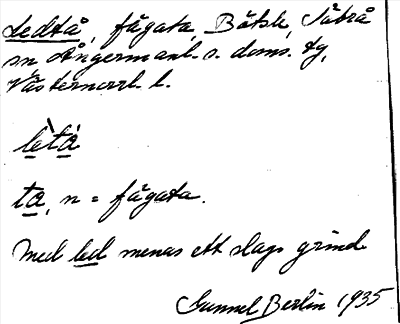 Ledtå, fägata, Båtsk, Säbrå
sn Ångermanl. s. doms. tg,
Västernorrl. l.
lètá
ta, n = fägata.
Med led menas ett slags grind
Gunnel Berlin 1935